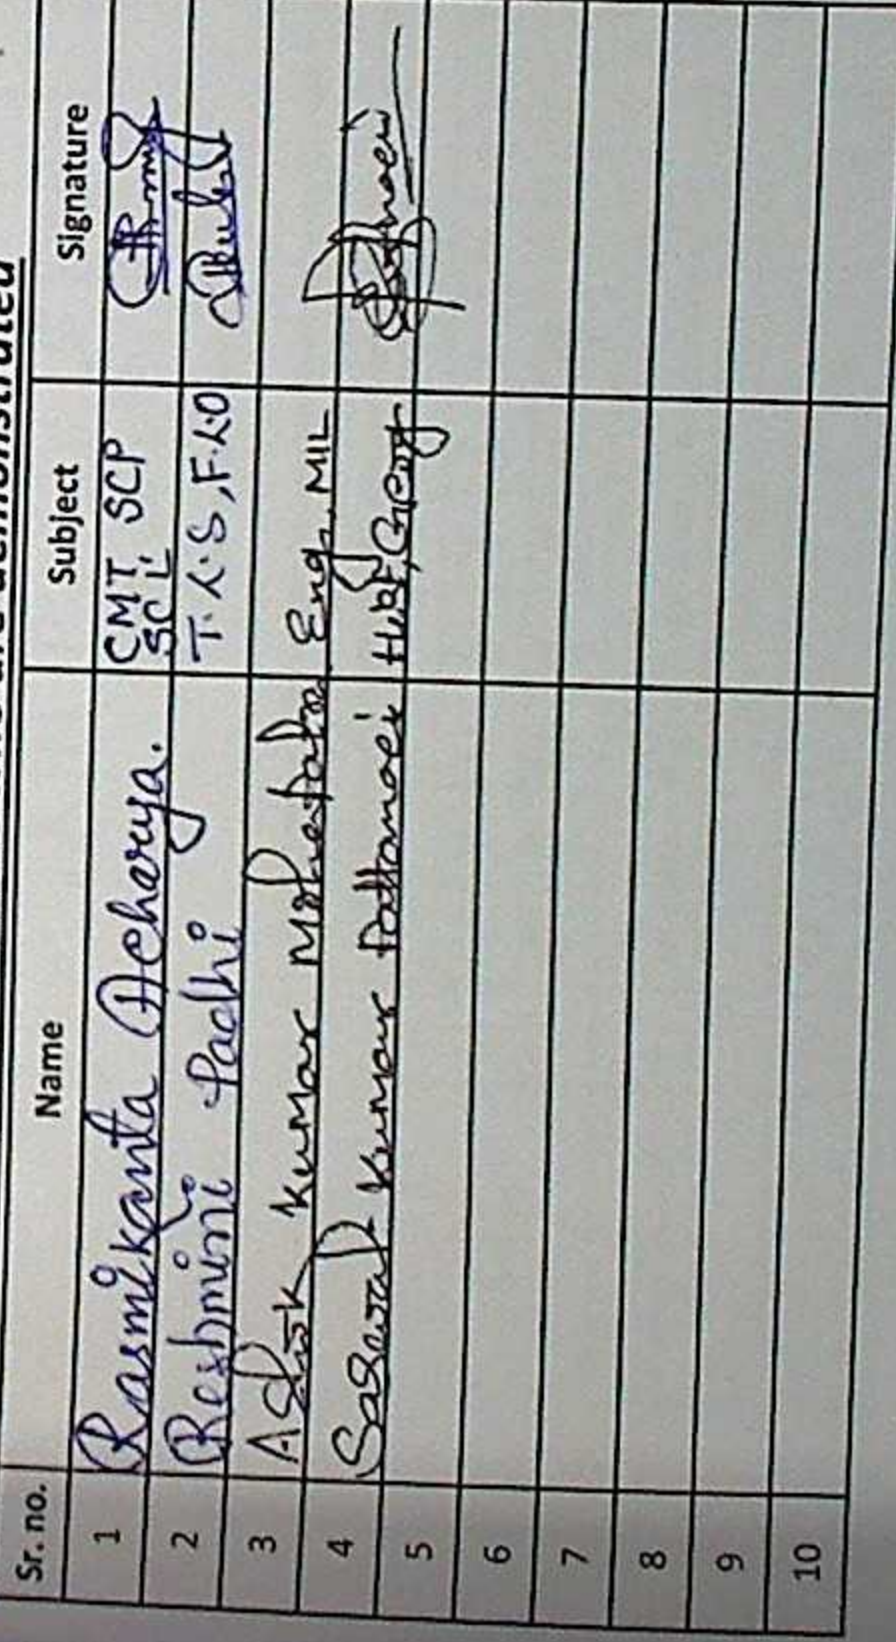 demonstrated
Sr. no. Name Subject Signature
1 Rasmikanta Acharya. CMT, SCP
SCL,
2 Reshmini Padhi T.L.S, F.L.O
3 Ashok Kumar Mohapatra Eng, MIL
4 Kumar Pattanaik Hist, Geog
5
6
7
8
9
10